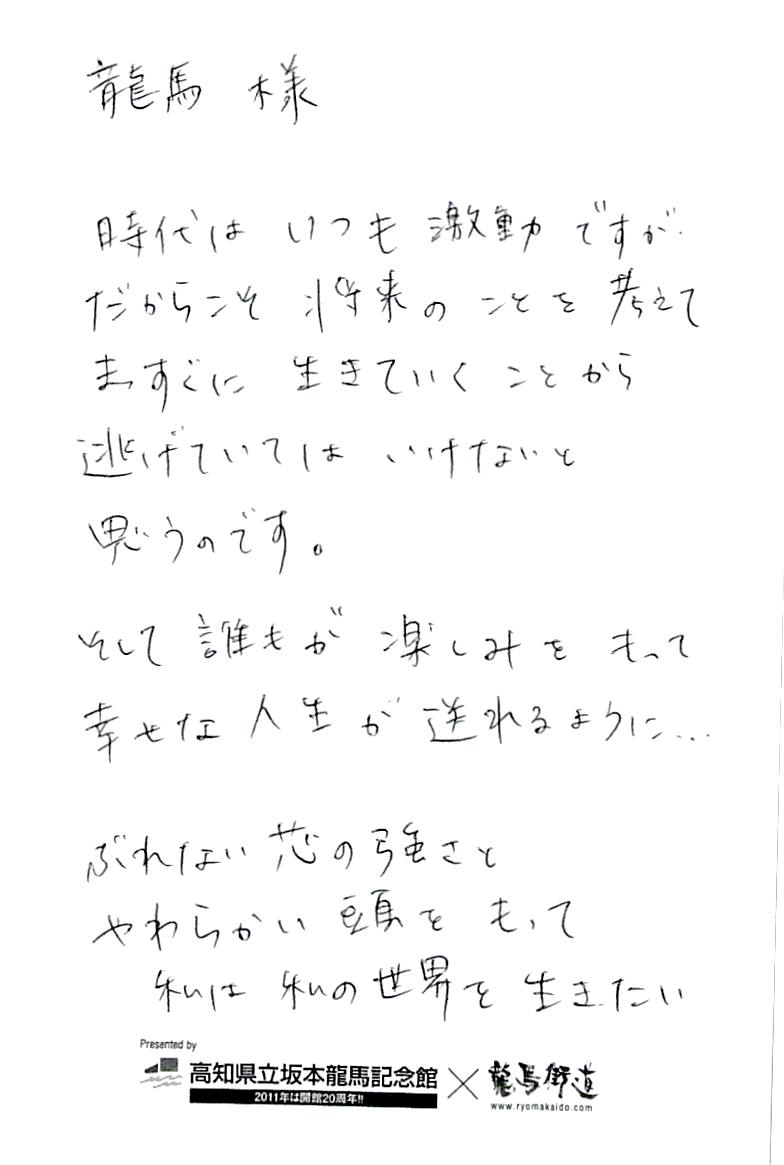 龍馬 様
時代は いつも 激動 ですが
だからこそ 将来の ことを 考えて
まっすぐに 生きていく ことから
逃げていては いけないと
思うのです。
そして 誰もが 楽しみを もって
幸せな 人生が 送れるように...
ぶれない 芯の強さと
やわらかい 頭を もって
私は 私の世界を 生きたい
Presented by
高知県立坂本龍馬記念館 × 龍馬街道
2011年は開館20周年!!
www.ryomakaido.com